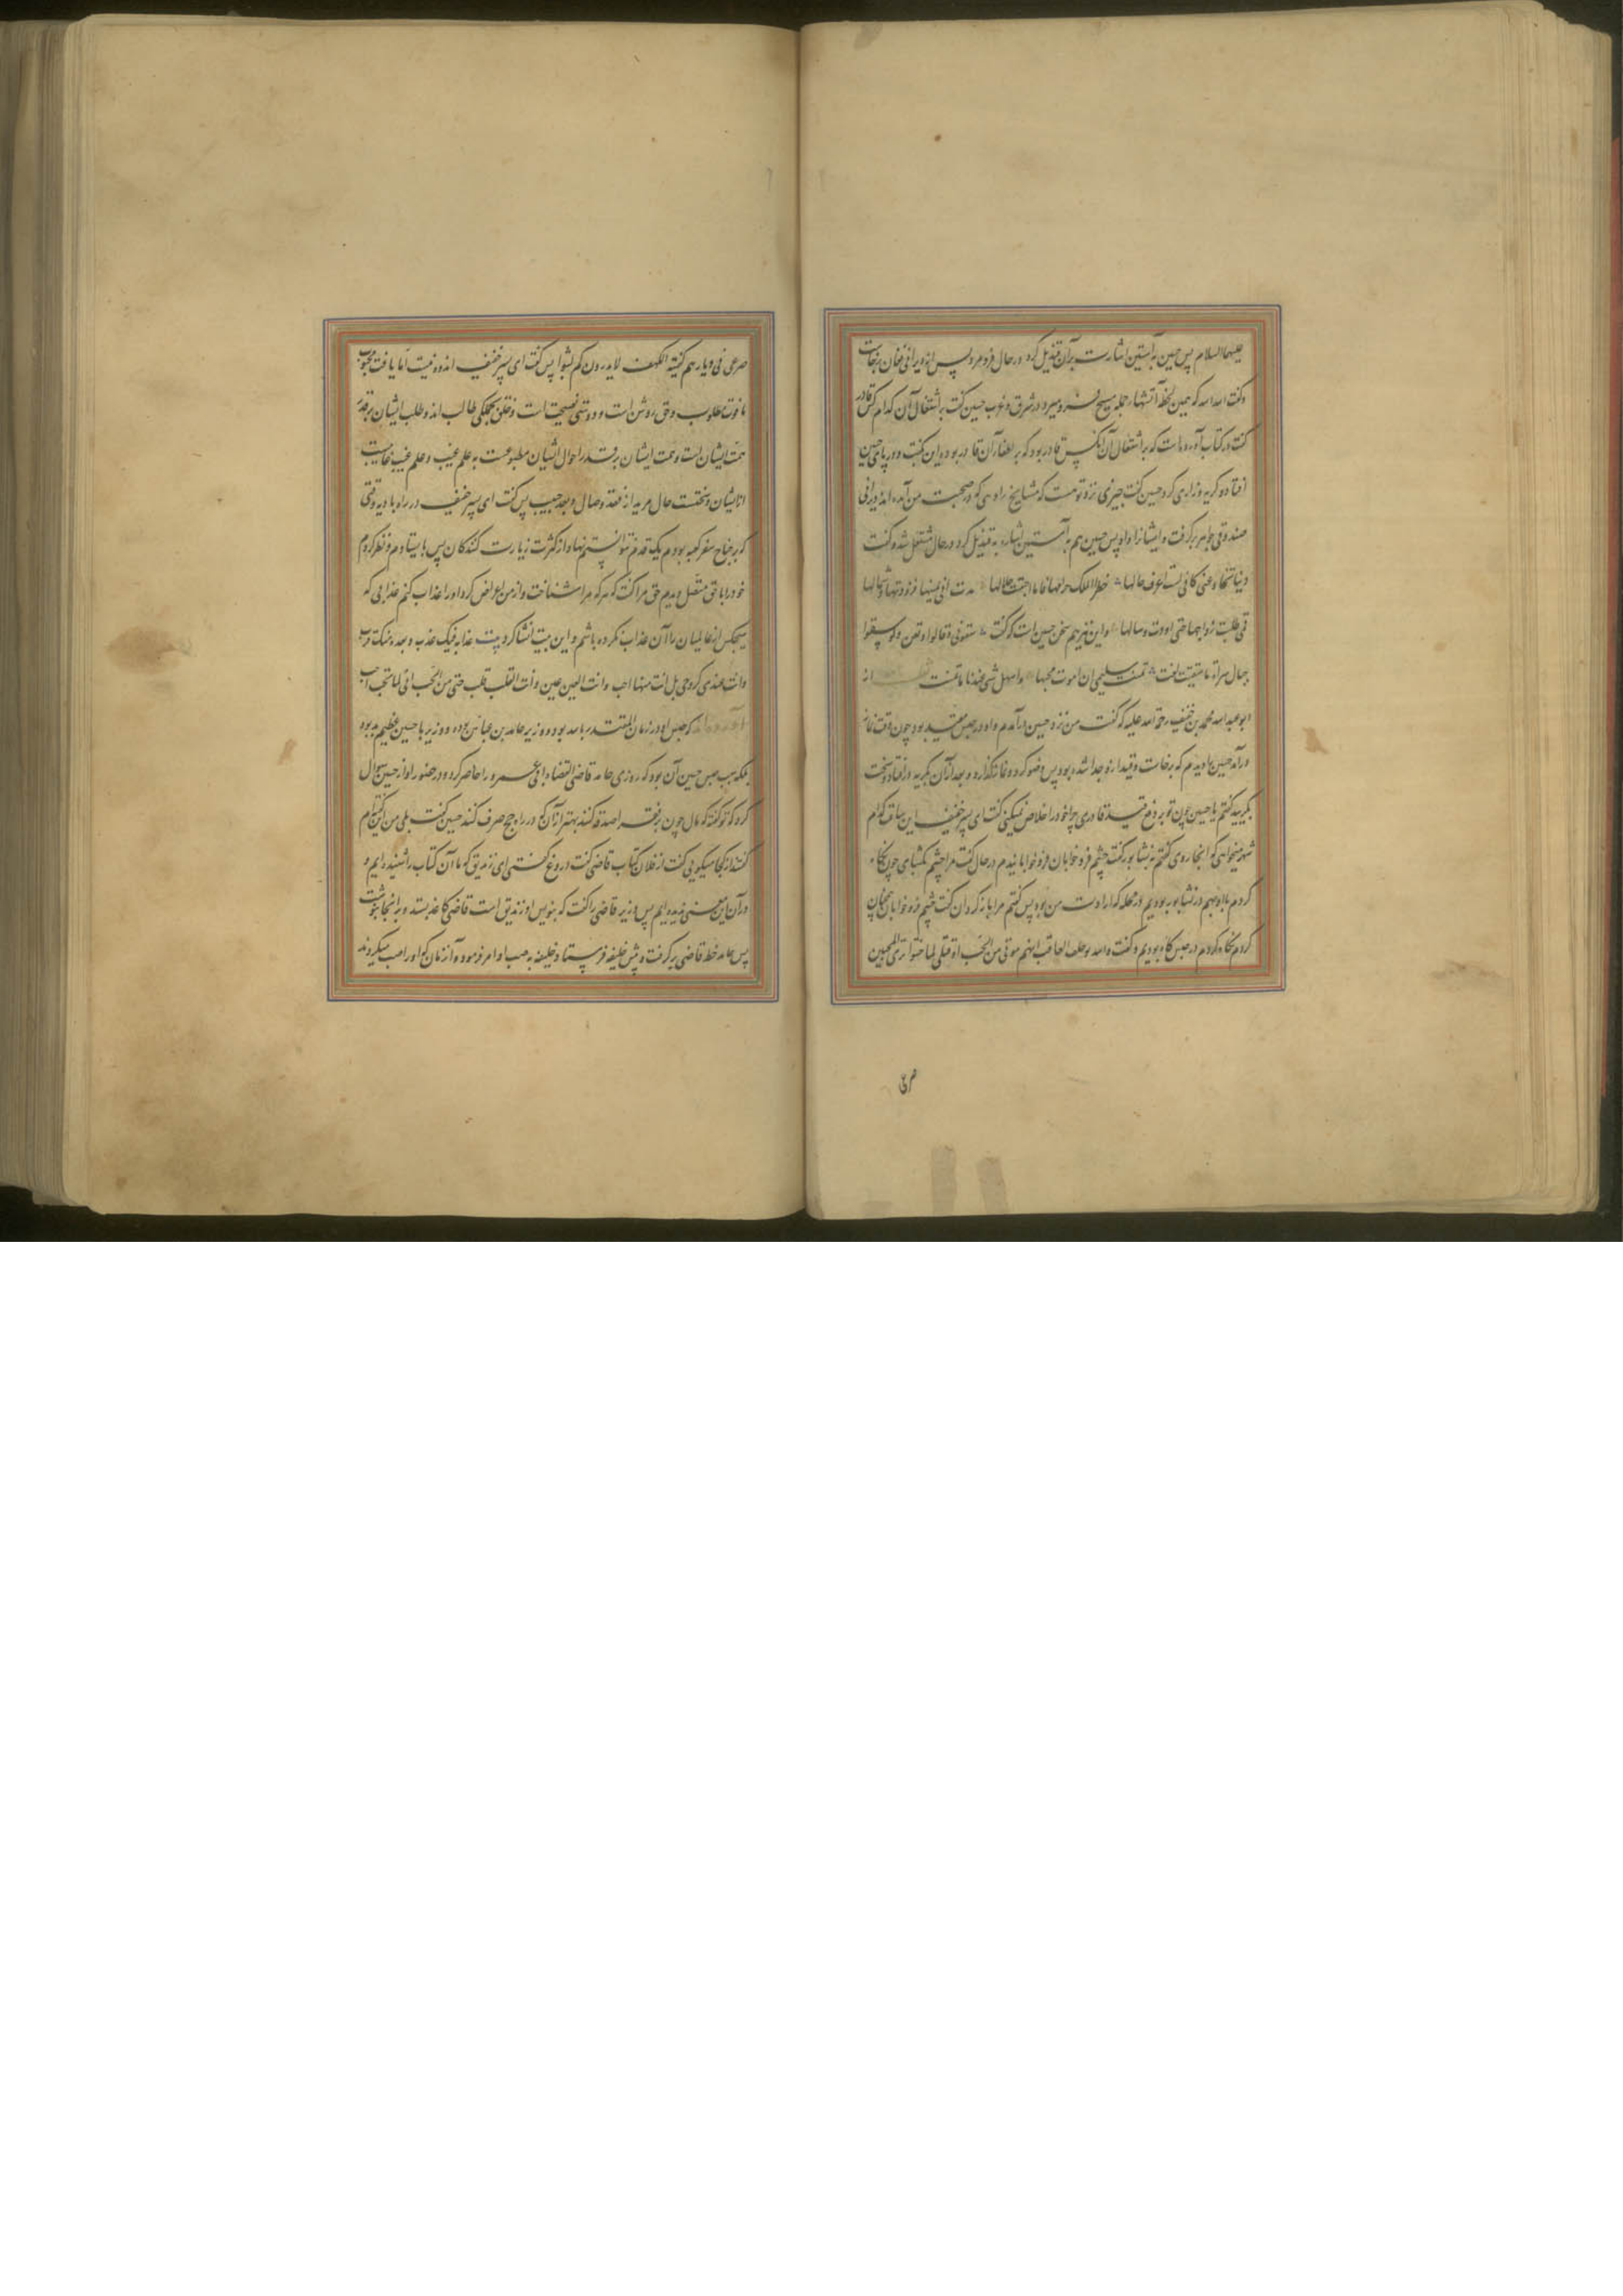 علیهما السلام پس حسین به آستین اشارت بر آن قندیل کرد در حال فرو مرد پس از دیرانی فغان برخاست
و گفت الله الله که همین لحظه آتشها جمله مسیح فرو میرد در شرق و غرب حسین گفت بر اشتعال آن کدام کس قادر
گفت در کتاب آورده است که بر اشتعال آن آنکس قادر بود که بر اطفاء آن قادر بوده این بگفت و در پای حسین
افتاد و گریه و زاری کرد حسین گفت چیزی نزد تو هست که مشایخ را دهی که در صحبت من آمده اند دیرانی
صندوقی جواهر برگرفت و ایشانرا داد پس حسین هم به آستین اشاره به قندیل کرد در حال مشتعل شد و گفت
دنیا تخادعنی کانی لست اعرف حالها خطر الملک حرامها فانا اجتنبت حلالها مدت الی یمینها فرددتها و شمالها
فمتی طلبت زواجها حتی اردت وصالها و این نیز هم سخن حسین است که گفت سقونی و قالوا لا تغن ولو سقوا
جبال سراة ما سقیت لغنت تمنت سلیمی ان اموت بحبها و اسهل شی عندنا ما تمنت از
ابو عبد الله محمد بن خفیف رحمة الله علیه که گفت من نزد حسین درآمدم و او در حبس مقید بود چون وقت نماز
درآمد حسین را دیدم که برخاست و قید از او جدا شده بود پس وضو کرد و نماز بگذارد و بعد از آن بگریه در افتاد و سخت
بگریید گفتم یا حسین چون تو بر دفع قید قادری چرا خود را خلاص نمیکنی گفت ای پسر خفیف این ساعت کدام
شهر میخواهی که آنجا روی گفتم نیشابور گفت چشم فرو خوابان فرو خوابانیدم در حال گفت مرا چشم بگشای چون نگاه
کردم با او بهم در نیشابور بودیم در محله که ارادت من بود پس گفتم مرا باز گردان گفت چشم فرو خوابان همچنان
کردم نگاه کردم در حبس گاه بودیم و گفت والله لو حلف العاشق انهم موتی من الحب او قتلی لما حنثوا تری المحبین
صرعی
صرعی فی دیارهم کفتیة الکهف لا یدرون کم لبثوا پس گفت ای پسر خفیف اندوه نیست اما یافت محبوب
یا فوت مطلوب و حق روشن است و دوستی فضیحت است و خلق بجملگی طالب اند و طلب ایشان بر قدر
همت ایشان است و همت ایشان بر قدر احوال ایشان مطبوعست به علم غیب و علم غیب غایبست
از ایشان و نخست حال مرید از فقد وصال و بعد حبیب پس گفت ای پسر خفیف در راه بادیه وقتی
که بر جناح سفر کعبه بودم یک قدم نتوانستم نهاد از کثرت زیارت کنندگان پس بایستادم و نظر کردم
خود را با حق متصل دیدم حق مرا گفت که هر که مرا شناخت و از من اعراض کرد او را عذاب کنم عذابی که
هیچکس از عالمیان را آن عذاب نکرده باشم و این بیت انشا کرد بیت عذابه فیک عذب و بعده منک قرب
و انت عندی کروحی بل انت منها احب و انت للعین عین و انت للقلب قلب حتی من الحب انی لما تحب احب
آورده اند که حبس او در زمان المقتدر بالله بود و وزیر حامد بن عباس بوده و وزیر با حسین عظیم بد بود
بلکه سبب حبس حسین آن بود که روزی حامد قاضی القضاة ابی عمرو را حاضر کرد و در حضور او از حسین سوال
کرد که تو گفته که مال چون بر فقرا صدقه کنند بهتر از آن که در راه حج صرف کنند حسین گفت بلی من گفته ام
گفتند از کجا میگویی گفت از فلان کتاب قاضی گفت دروغ گفتی ای زندیق که ما آن کتاب را شنیده ایم و
در آن این معنی ندیده ایم پس وزیر قاضی را گفت که بنویس او زندیق است قاضی کاغذ بستد و بر آنجا نوشت
پس حامد خط قاضی برگرفت و پیش خلیفه فرستاد و خلیفه به صلب او امر فرمود و آن زمان که او را صلب میکردند